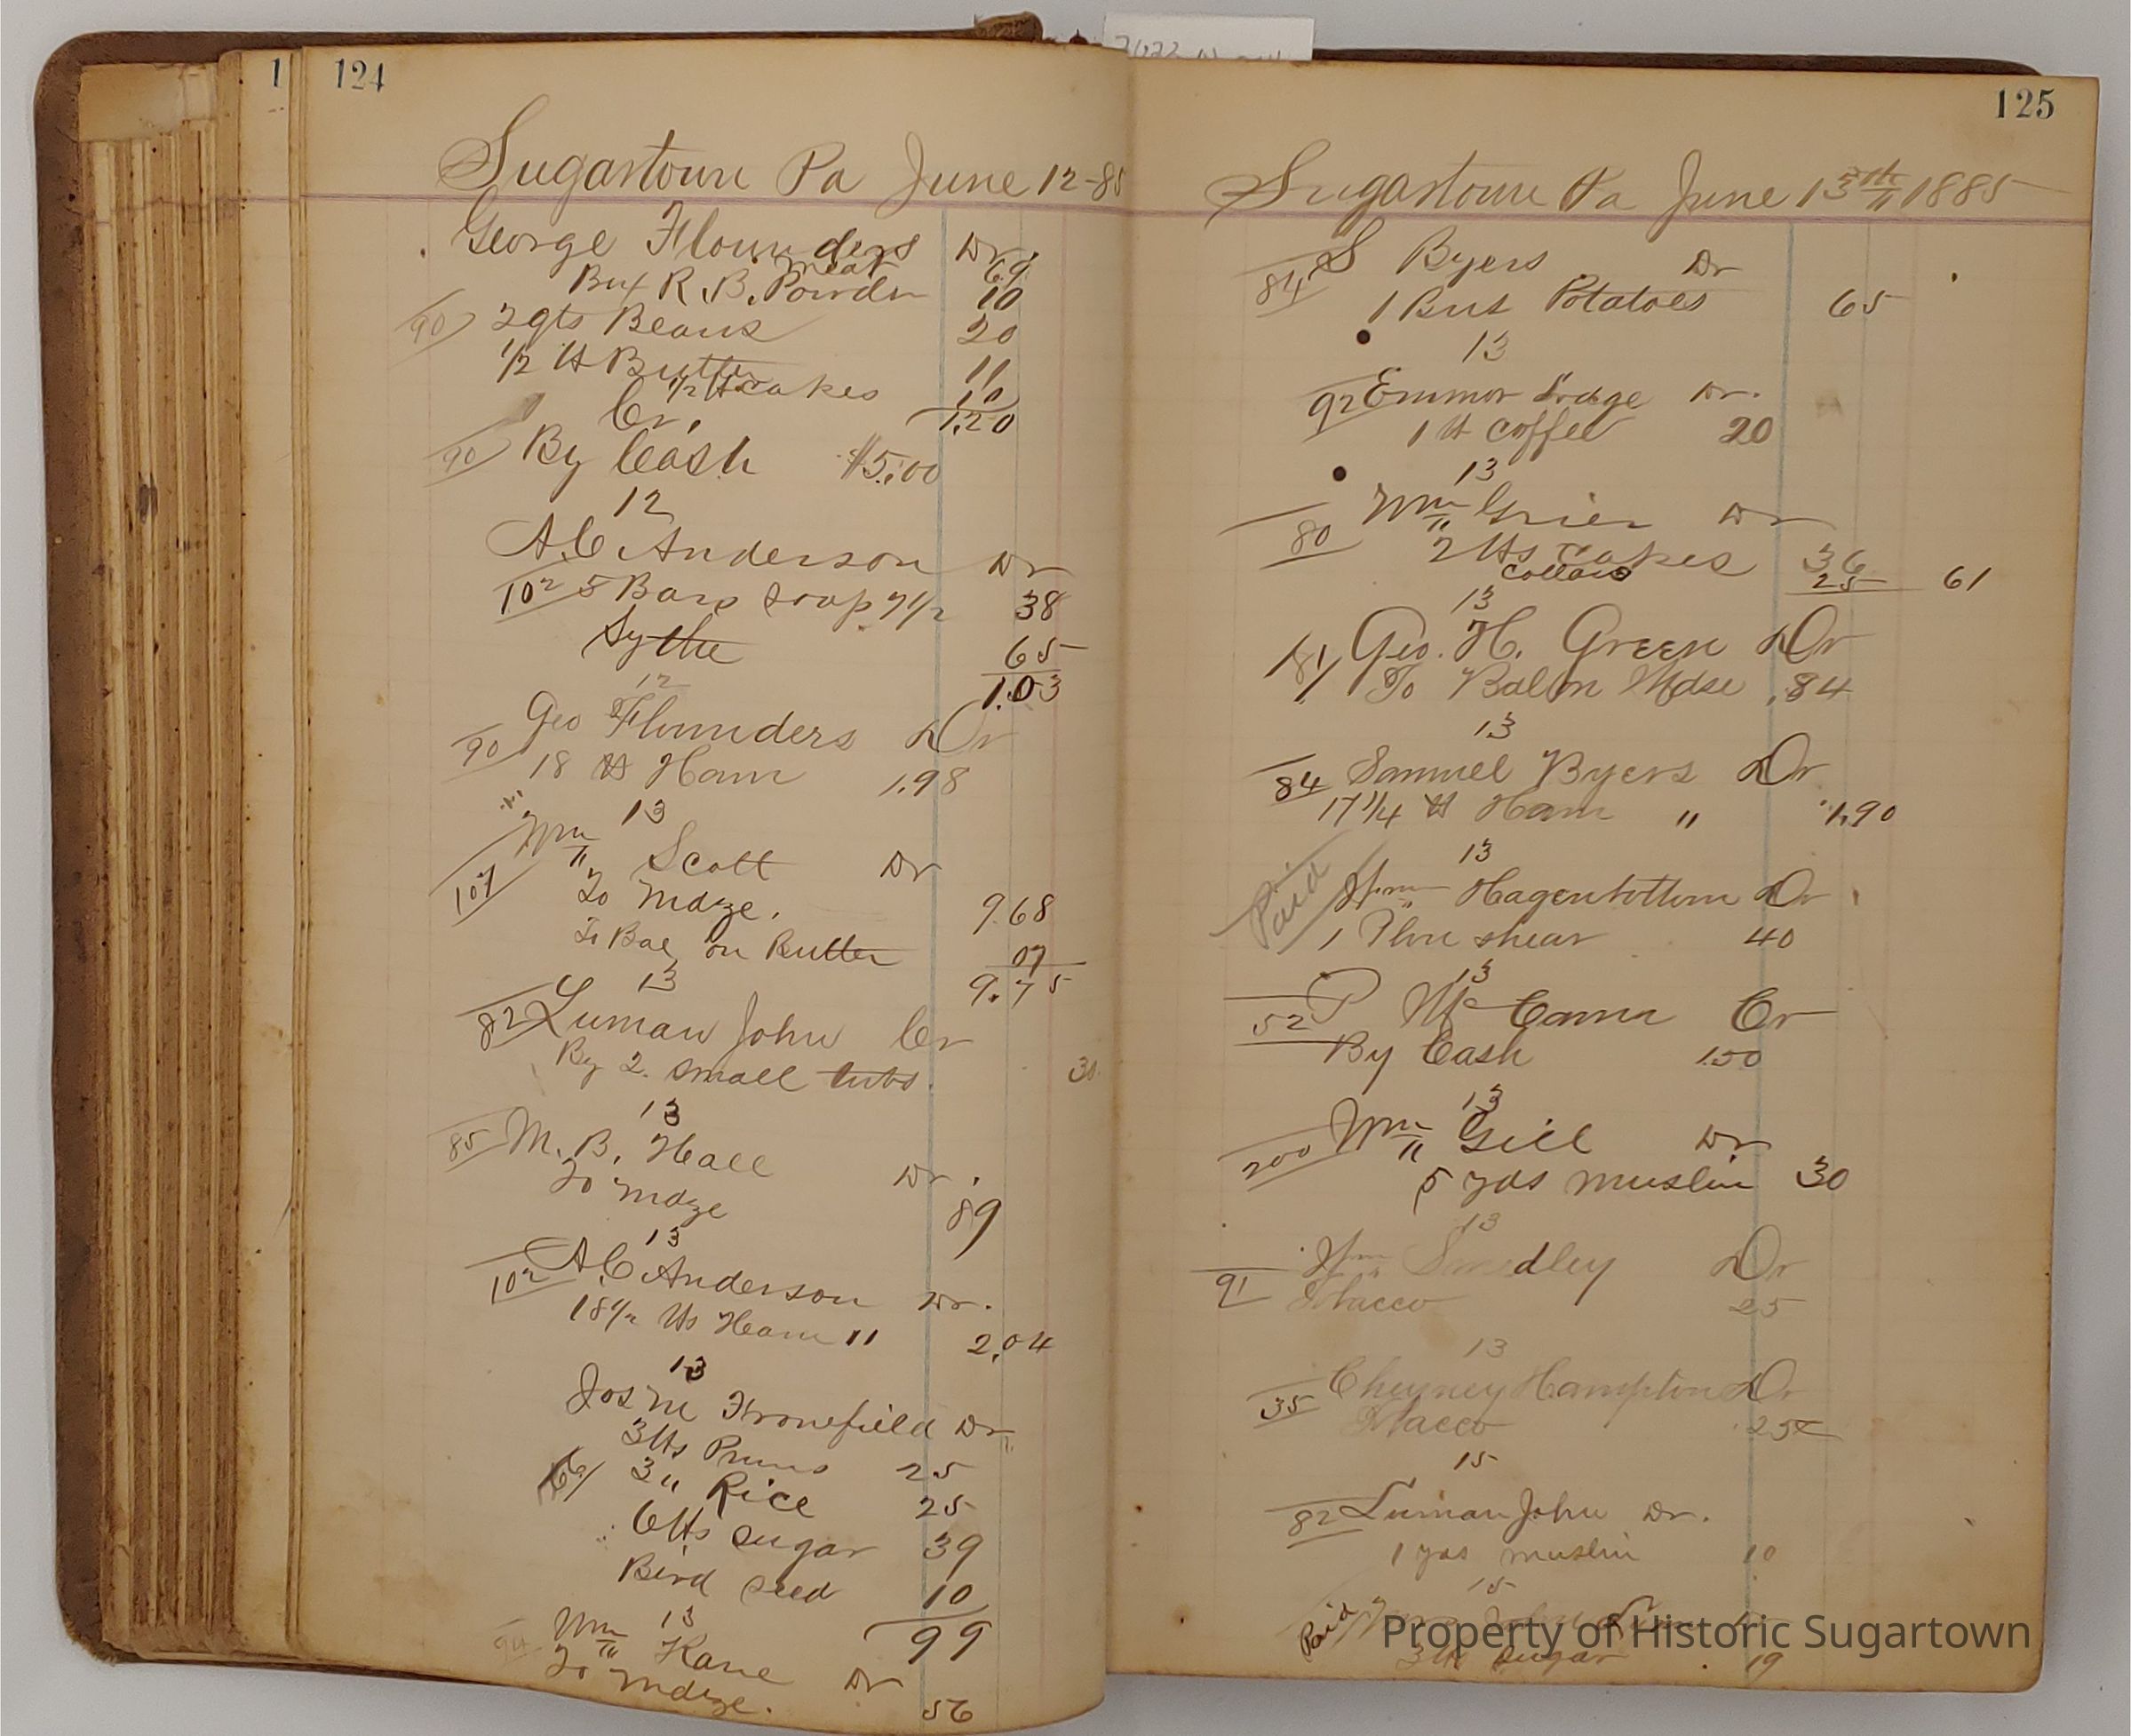 1 124
Sugartown Pa June 12-85
George Flounders Dr
meat 69
Bux R. B. Powder 10
90 2 qts Beans 20
1/2 lb Butter 11
1/2 lb cakes 10
Cr, 1.20
90 By Cash $5.00
12
A.C. Anderson Dr
102 5 Bars soap 7 1/2 38
Sythe 65
1.03
12
Geo Flounders Dr
90 18 lb Ham 1.98
13
Wm Scott Dr
107 To mdze. 9.68
To Bal on Butter 07
9.75
13
82 Luman John Cr
By 2 small tubs. 30
13
85 M. B. Hall Dr.
To mdze 89
13
102 A.C. Anderson Dr.
18 1/2 lbs Ham 11 2.04
13
Jos M Fronefield Dr
3 lbs Pruns 25
66 3 " Rice 25
6 lbs sugar 39
Bird seed 10
99
13
94 Wm Kane Dr
To mdze. 56
125
Sugartown Pa June 13th 1885
84 S Byers Dr
1 Bus Potatoes 65
13
92 Emmor Lodge Dr.
1 lb coffee 20
13
80 Wm Grier Dr
2 lbs cakes 36
collars 25 61
13
181 Geo. H. Green Dr
To Bal on Mdse .84
13
84 Samuel Byers Dr
17 1/4 lb Ham " 1.90
13
Paid Wm Hagenbottom Dr
1 Plow shear 40
13
52 P McCann Cr
By Cash 1.50
13
200 Wm Gill Dr
5 yds muslin 30
13
91 Wm Smedley Dr
Tobacco 25
13
35 Cheyney Hampton Dr
Tobacco .25c
15
82 Luman John Dr.
1 yds muslin 10
15
Paid
3 lb sugar 19
Property of Historic Sugartown